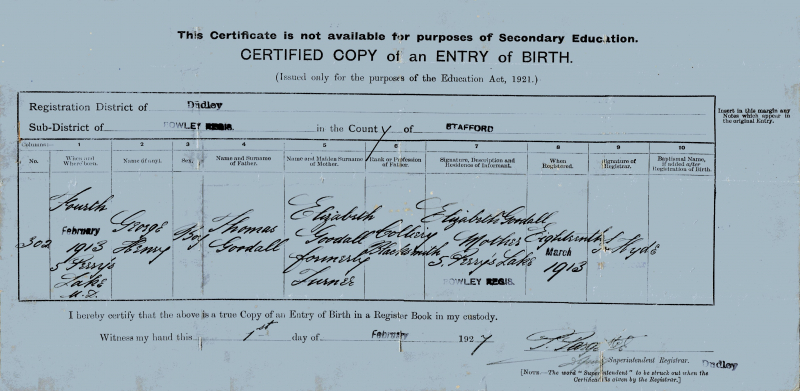 This Certificate is not available for purposes of Secondary Education.
CERTIFIED COPY of an ENTRY of BIRTH.
(Issued only for the purposes of the Education Act, 1921.)
Insert in this margin any
Notes which appear in
the original Entry.
Registration District of Dudley
Sub-District of ROWLEY REGIS. in the County of STAFFORD
Columns:— 1 2 3 4 5 6 7 8 9 10
No. When and Where born. Name if any. Sex. Name and Surname of Father. Name and Maiden Surname of Mother. Rank or Profession of Father. Signature, Description and Residence of Informant. When Registered. Signature of Registrar. Baptismal Name, if added after Registration of Birth.
302
Fourth
February
1913
5 Perry's
Lake
U.D.
George
Henry
Boy
Thomas
Goodall
Elizabeth
Goodall
formerly
Turner
Colliery
Blacksmith
Elizabeth Goodall
Mother
5, Perry's Lake
ROWLEY REGIS.
Eighteenth
March
1913
Hyde
I hereby certify that the above is a true Copy of an Entry of Birth in a Register Book in my custody.
Witness my hand this 1st day of February 1927
Superintendent Registrar. Dudley
[NOTE.—The word "Superintendent" to be struck out when the
Certificate is given by the Registrar.]